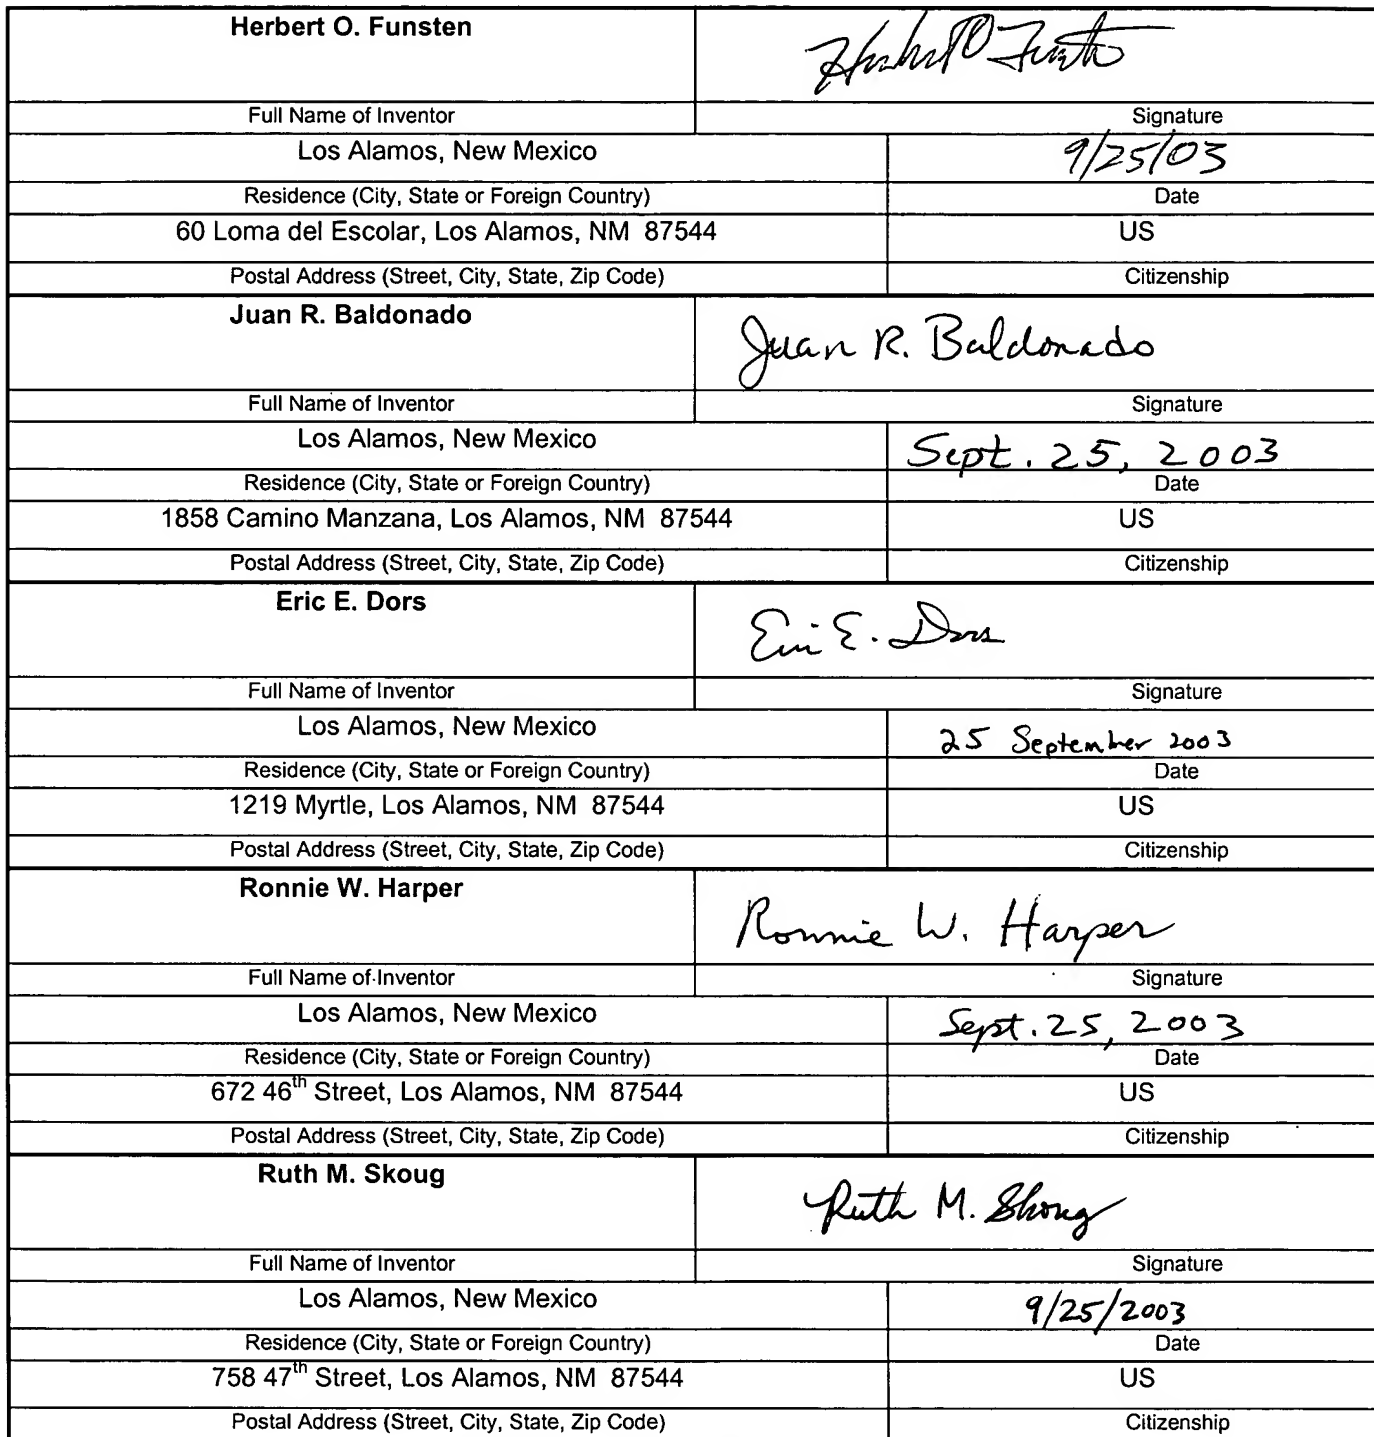 Herbert O. Funsten
Herbert O Funsten
Full Name of Inventor Signature
Los Alamos, New Mexico 9/25/03
Residence (City, State or Foreign Country) Date
60 Loma del Escolar, Los Alamos, NM 87544 US
Postal Address (Street, City, State, Zip Code) Citizenship
Juan R. Baldonado
Juan R. Baldonado
Full Name of Inventor Signature
Los Alamos, New Mexico Sept. 25, 2003
Residence (City, State or Foreign Country) Date
1858 Camino Manzana, Los Alamos, NM 87544 US
Postal Address (Street, City, State, Zip Code) Citizenship
Eric E. Dors
Eric E. Dors
Full Name of Inventor Signature
Los Alamos, New Mexico 25 September 2003
Residence (City, State or Foreign Country) Date
1219 Myrtle, Los Alamos, NM 87544 US
Postal Address (Street, City, State, Zip Code) Citizenship
Ronnie W. Harper
Ronnie W. Harper
Full Name of Inventor Signature
Los Alamos, New Mexico Sept. 25, 2003
Residence (City, State or Foreign Country) Date
672 46th Street, Los Alamos, NM 87544 US
Postal Address (Street, City, State, Zip Code) Citizenship
Ruth M. Skoug
Ruth M. Skoug
Full Name of Inventor Signature
Los Alamos, New Mexico 9/25/2003
Residence (City, State or Foreign Country) Date
758 47th Street, Los Alamos, NM 87544 US
Postal Address (Street, City, State, Zip Code) Citizenship